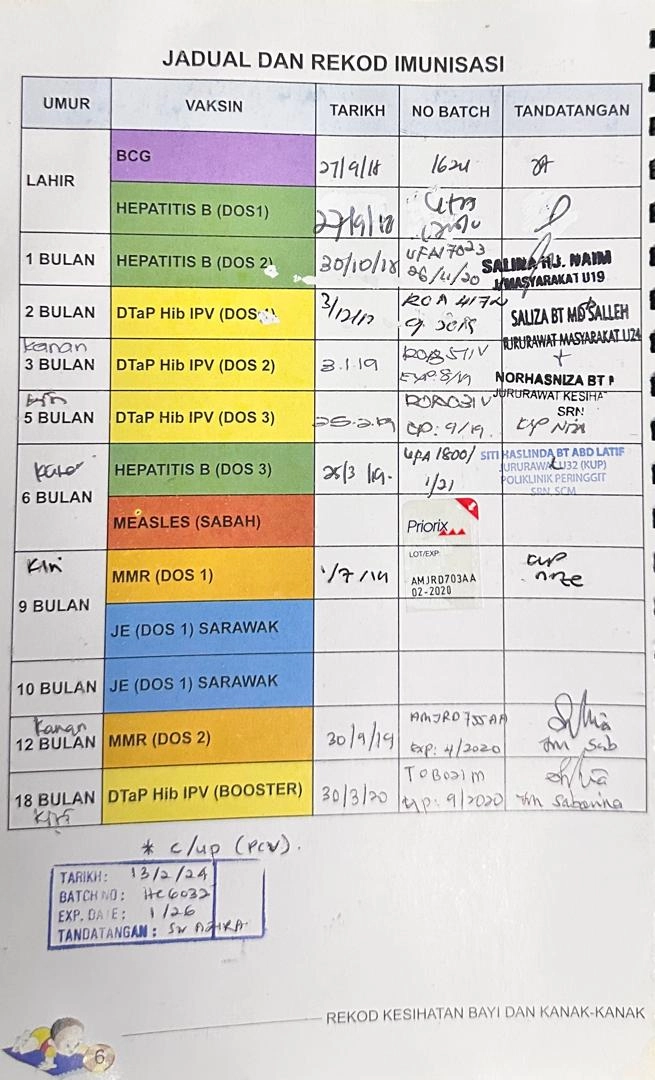 JADUAL DAN REKOD IMUNISASI
UMUR VAKSIN TARIKH NO BATCH TANDATANGAN
LAHIR
BCG 27/9/18
HEPATITIS B (DOS1) 27/9/18
1 BULAN HEPATITIS B (DOS 2) 30/10/18 UFA17023
SALINA HJ. NAIM
J/MASYARAKAT U19
2 BULAN DTaP Hib IPV
SALIZA BT MD SALLEH
JURURAWAT MASYARAKAT U24
Kanan
3 BULAN DTaP Hib IPV (DOS 2) 3.1.19
NORHASNIZA BT
JURURAWAT KESIHA
SRN
5 BULAN DTaP Hib IPV (DOS 3) 25.2.19 9/19
6 BULAN
HEPATITIS B (DOS 3) 25/3/19. UFA 1800/
1/21
SITI HASLINDA BT ABD LATIF
JURURAWAT U32 (KUP)
POLIKLINIK PERINGGIT
SRN SCM
MEASLES (SABAH)
Priorix
Kiri
9 BULAN
MMR (DOS 1) 1/7/19
LOT/EXP:
AMJRD703AA
02-2020
JE (DOS 1) SARAWAK
10 BULAN JE (DOS 1) SARAWAK
Kanan
12 BULAN MMR (DOS 2) 30/9/19 AMJRD755AA
Exp: 4/2020
18 BULAN DTaP Hib IPV (BOOSTER) 30/3/20
9/2020
Kiri
* c/up (PCV).
TARIKH: 13/2/24
BATCH NO: HC6032
EXP. DATE: 1/26
TANDATANGAN: SN AZIRA
REKOD KESIHATAN BAYI DAN KANAK-KANAK
6